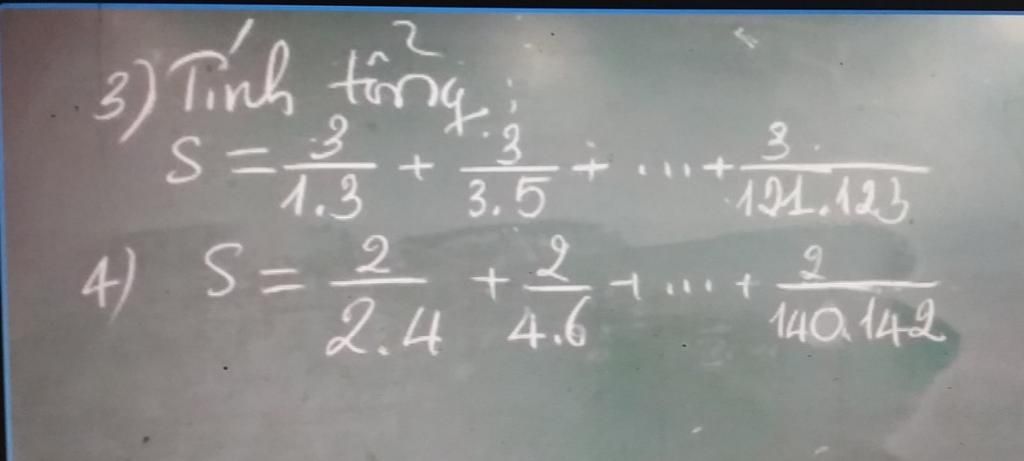 3) Tính tổng:
S = 3/1.3 + 3/3.5 + ... + 3/121.123
4) S = 2/2.4 + 2/4.6 + ... + 2/140.142